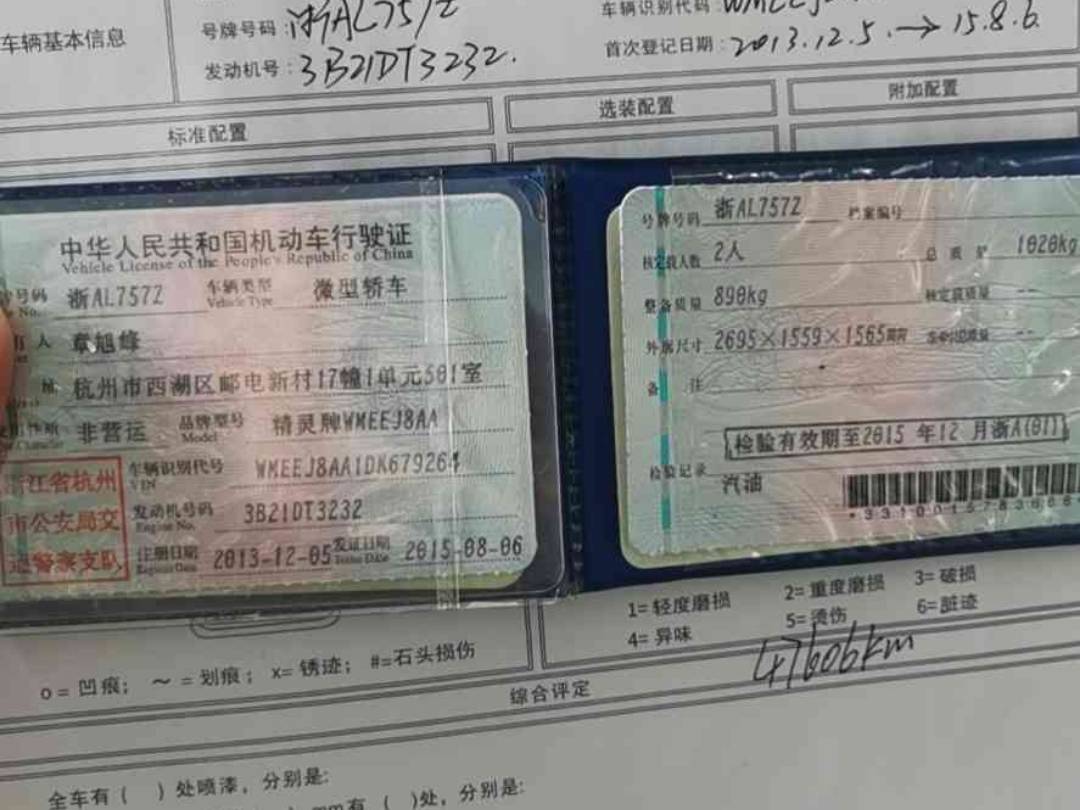 号牌号码：浙AL757Z
车辆识别代码：
车辆基本信息
首次登记日期：2013.12.5.→15.8.6.
发动机号：3B21DT3232.
附加配置
选装配置
标准配置
中华人民共和国机动车行驶证
Vehicle License of the People's Republic of China
号码 浙AL757Z 车辆类型 微型轿车
No. Vehicle Type
人 章旭峰
杭州市西湖区邮电新村17幢1单元501室
非营运 品牌型号 精灵牌WMEEJ8AA
Model
浙江省杭州
市公安局交
通警察支队
车辆识别代号 WMEEJ8AA1DK679264
VIN
发动机号码 3B21DT3232
Engine No.
注册日期 2013-12-05 发证日期 2015-08-06
Register Date Issue Date
号牌号码 浙AL757Z 档案编号
核定载人数 2人 总质量 1020kg
整备质量 890kg 核定载质量 --
外廓尺寸 2695×1559×1565 --
备注
检验有效期至2015年12月浙A(01)
检验记录
汽油
1=轻度磨损 2=重度磨损 3=破损
4=异味 5=烫伤 6=脏迹
47606km
o=凹痕； ～=划痕； x=锈迹； #=石头损伤
综合评定
全车有（ ）处喷漆，分别是:
mm有（ ）处，分别是: